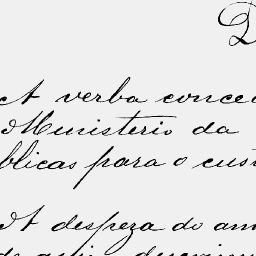 D
A verba conce
Ministerio da
blicas para o cust
A despeza do am